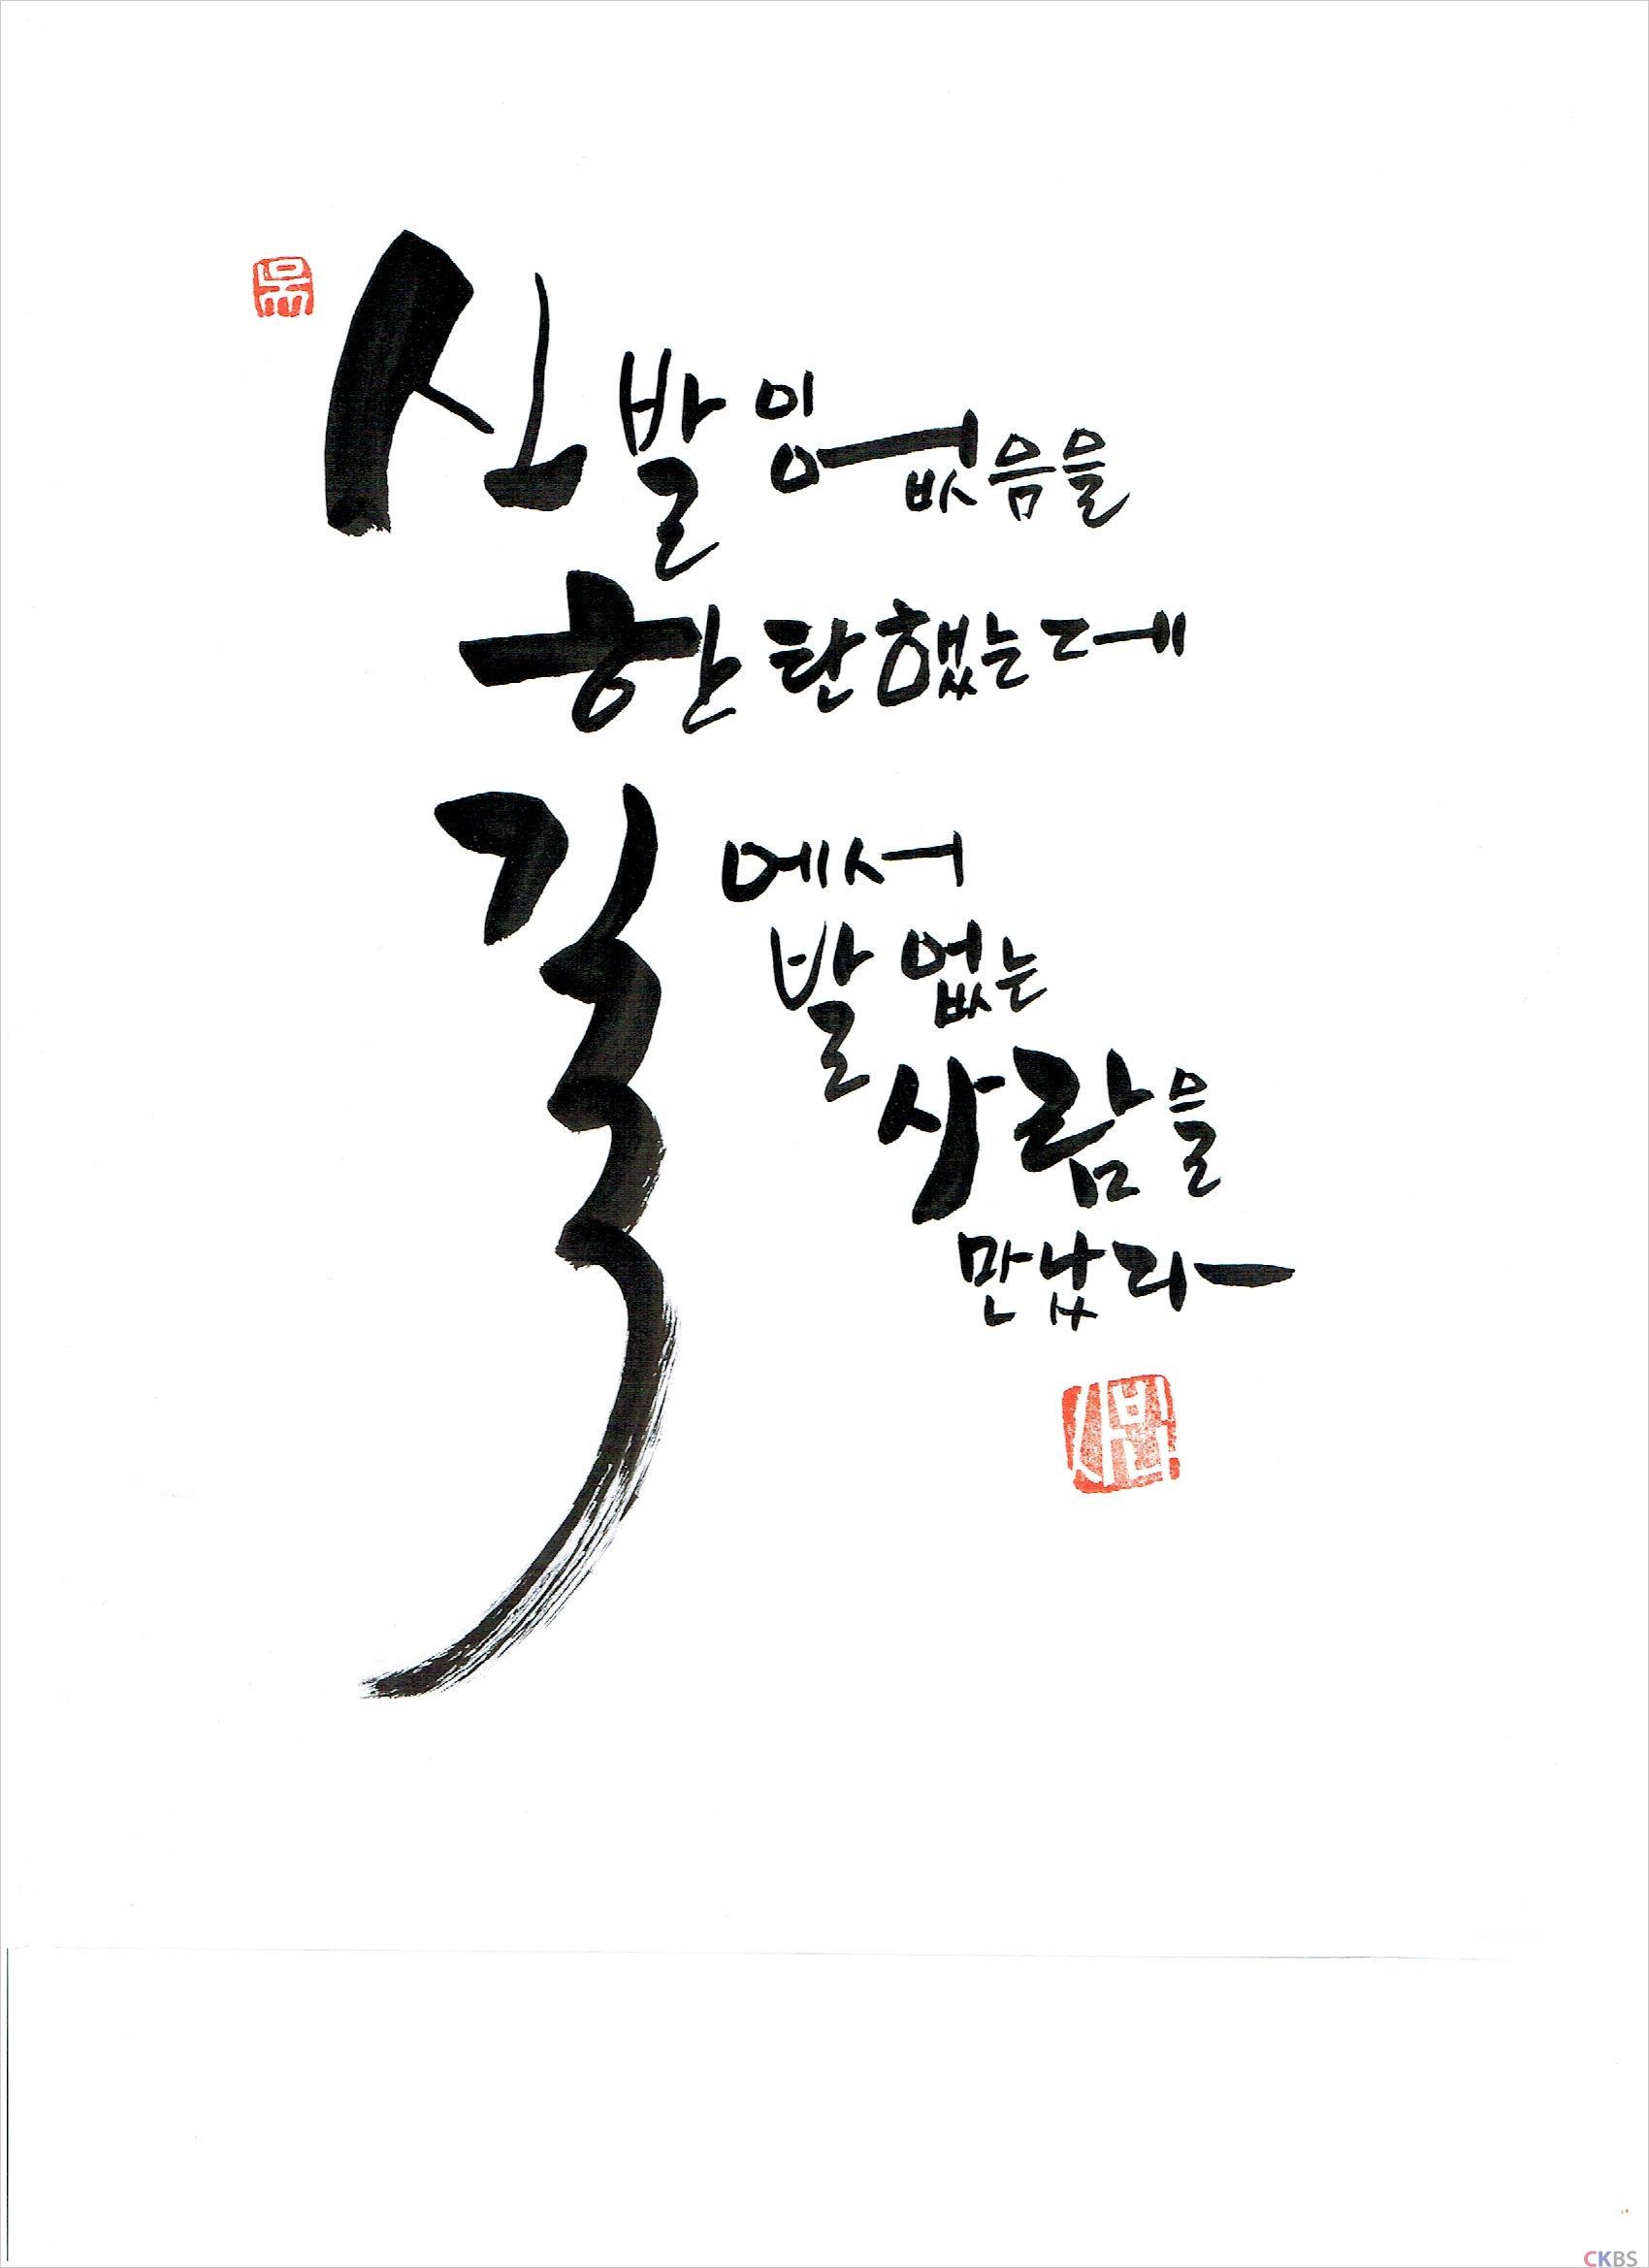 신발이 없음을
한탄했는데
길에서
발 없는
사람을
만났다
CKBS